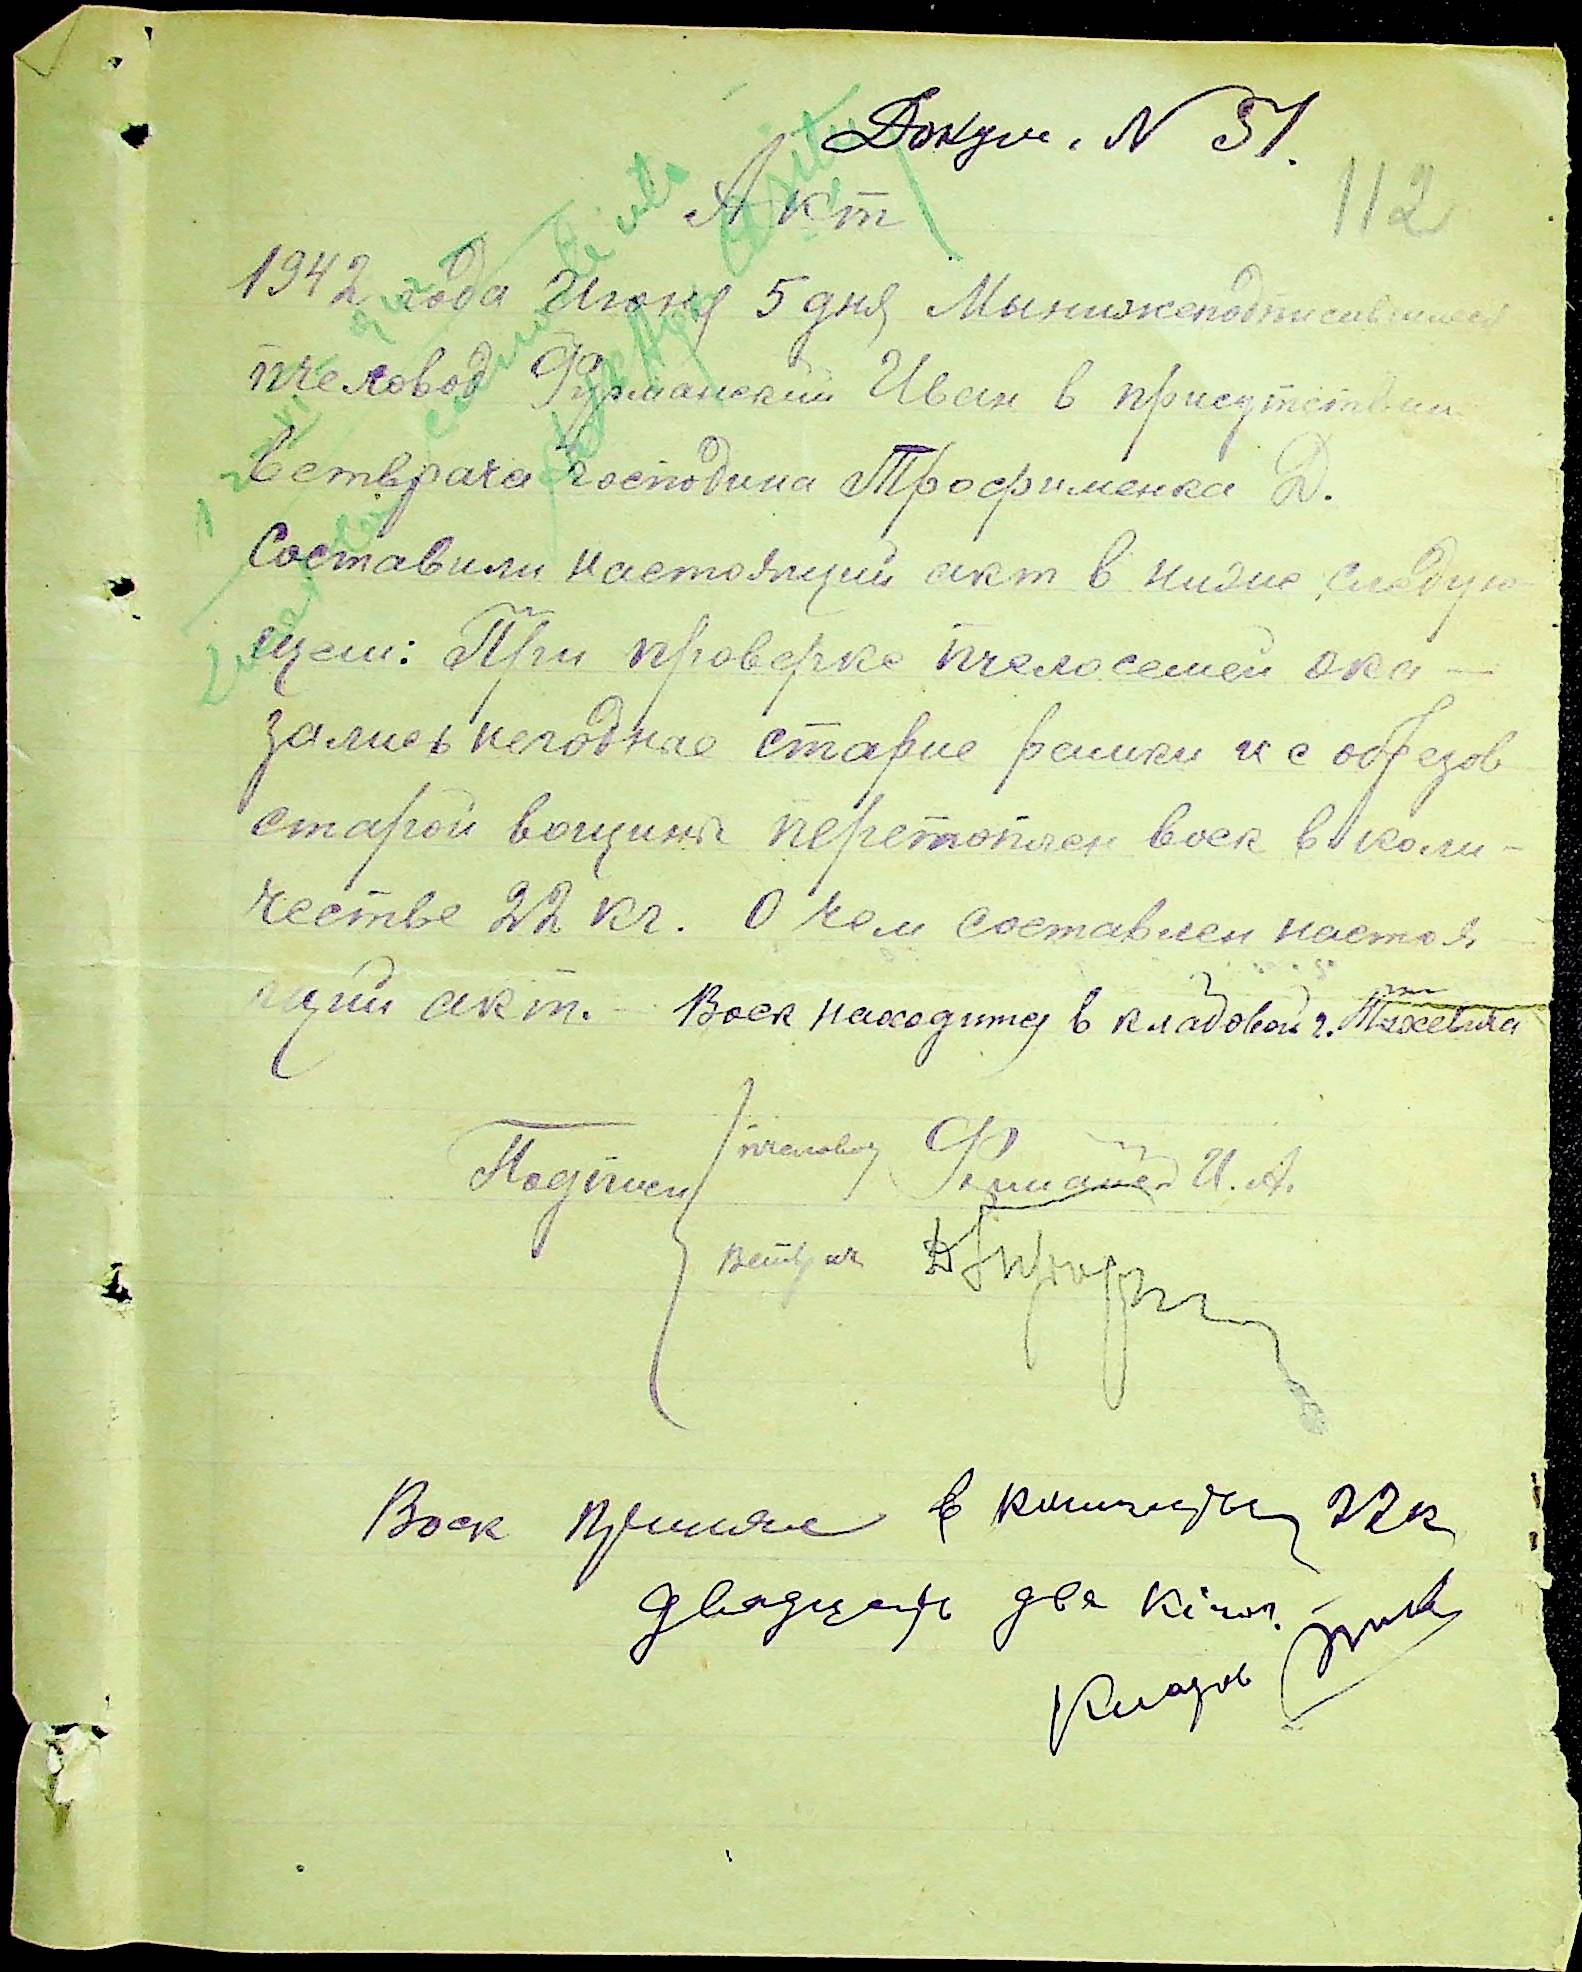 Докум. N 31.
112
Акт
1942 года Июня 5 дня Мынижеподписавшиеся
пчеловод Фурманский Иван в присутствии
Ветврача господина Трофименка Д.
Составили настоящий акт в ниже следую-
щем: При проверке пчелосемей ока-
зались негоднае старие рамки и с обрезов
старой вощины перетоплен воск в коли-
честве 22 кг. О чем составлен настоя
щий акт. - Воск находится в кладовой г.
Подписи
пчеловод И. А.
Ветврач
Воск принял в 22 к
двадцать два кілог.
Кладов